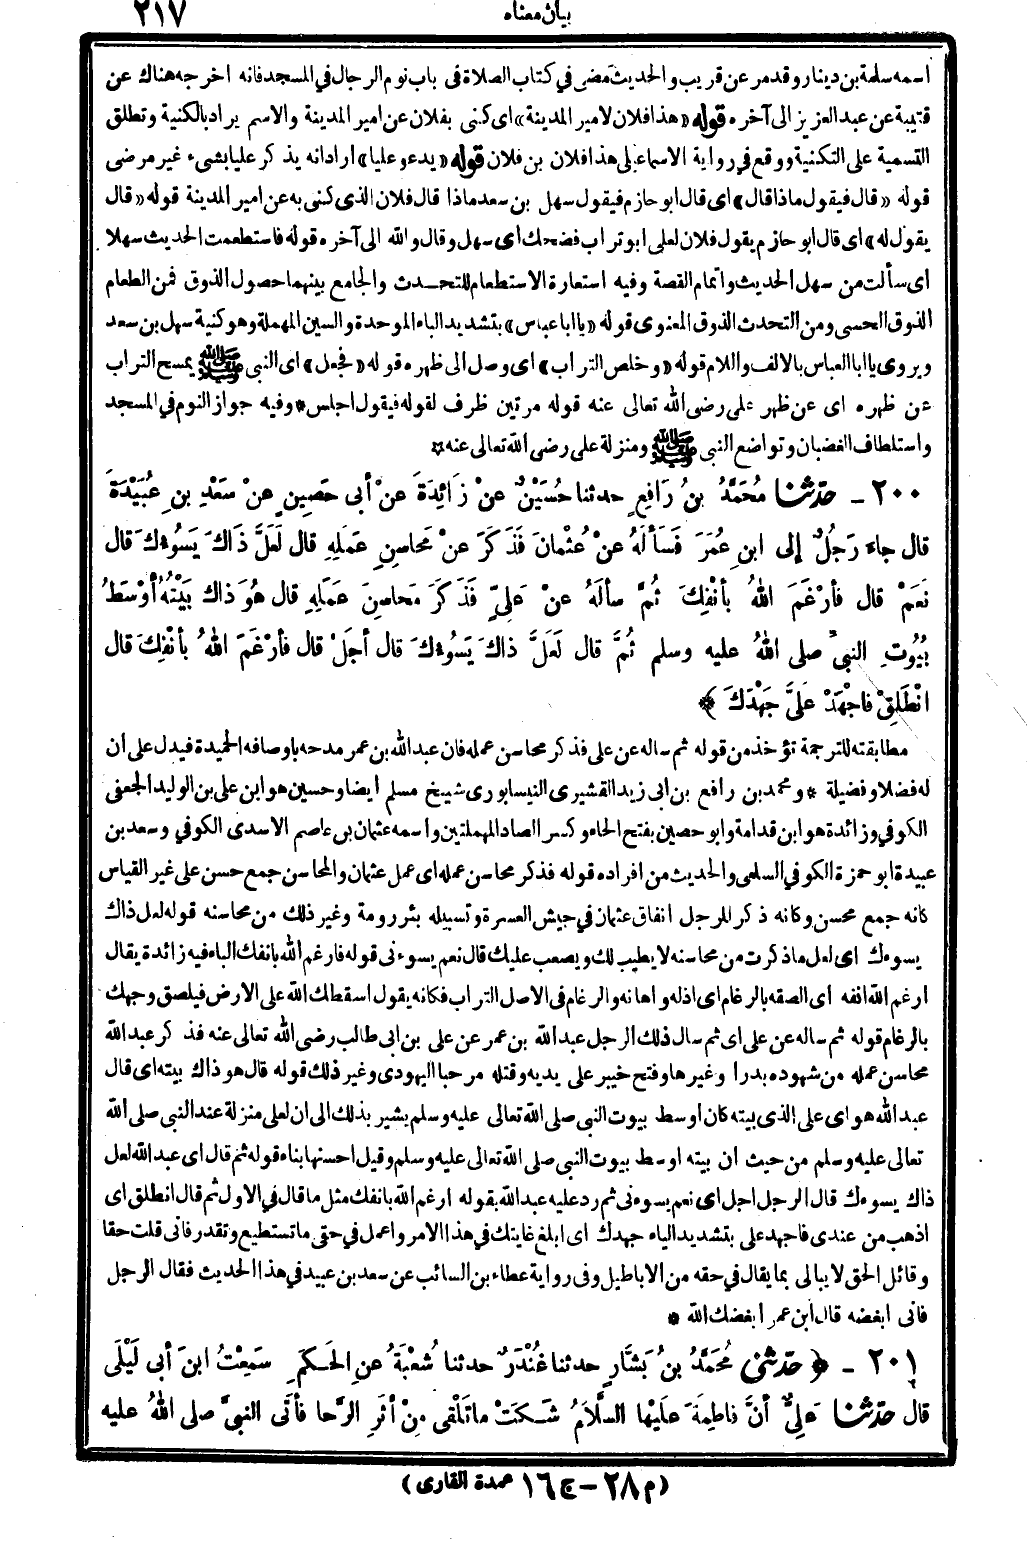 بيان معناه ٢١٧
اسمه سلمة بن دينار وقد مر عن قريب والحديث مضى في كتاب الصلاة فى باب نوم الرجال في المسجد فانه اخرجه هناك عن
قتيبة عن عبد العزيز الى آخره قوله «هذا فلان لامير المدينة» اى كنى بفلان عن امير المدينة والاسم يراد بالكنية وتطلق
التسمية على التكنية ووقع في رواية الاسماعيلى هذا فلان بن فلان قوله «يدعو عليا» اراد انه يذكر عليا بشىء غير مرضى
قوله «قال فيقول ماذا قال» اى قال ابو حازم فيقول سهل بن سعد ماذا قال فلان الذى كنى به عن امير المدينة قوله «قال
يقول له» اى قال ابو حازم يقول فلان لعلى ابو تراب فضحك اى سهل وقال والله الى آخره قوله فاستطعمت الحديث سهلا
اى سألت من سهل الحديث واتمام القصة وفيه استعارة الاستطعام للتحدث والجامع بينهما حصول الذوق فمن الطعام
الذوق الحسى ومن التحدث الذوق المعنوى قوله «يا ابا عباس» بتشديد الباء الموحدة والسين المهملة وهو كنية سهل بن سعد
ويروى يا ابا العباس بالالف واللام قوله «وخلص التراب» اى وصل الى ظهره قوله «فجعل» اى النبى ﷺ يمسح التراب
عن ظهره اى عن ظهر على رضى الله تعالى عنه قوله مرتين ظرف لقوله فيقول اجلس * وفيه جواز النوم في المسجد
واستلطاف الغضبان وتواضع النبى ﷺ ومنزلة على رضى الله تعالى عنه *
٢٠٠ - حَدَّثَنَا مُحَمَّدُ بنُ رَافِعٍ حدثنا حُسَيْنٌ عنْ زَائِدَةَ عنْ أبى حَصِينٍ عنْ سَعْدِ بنِ عُبَيْدَةَ
قال جاء رَجُلٌ إلى ابنِ عُمَرَ فَسَأَلهُ عنْ عُثْمانَ فَذَكَرَ عنْ مَحاسِنِ عَمَلِهِ قال لَعَلَّ ذَاكَ يَسُوءُكَ قال
نَعَمْ قال فأرْغَمَ اللهُ بأنْفِكَ ثُمَّ سألَهُ عنْ عَلِيٍّ فَذَكَرَ مَحاسِنَ عَمَلِهِ قال هُوَ ذَاكَ بَيْتُهُ أوْسَطُ
بُيُوتِ النبيِّ صلى اللهُ عليه وسلم ثُمَّ قال لَعَلَّ ذَاكَ يَسُوءُكَ قال أجَلْ قال فأرْغَمَ اللهُ بأنْفِكَ قال
انْطَلِقْ فاجْهَدْ عَلَيَّ جَهْدَكَ ﴾
مطابقته للترجمة تؤخذ من قوله ثم ساله عن على فذكر محاسن عمله فان عبد الله بن عمر مدحه باوصافه الحميدة فيدل على أن
له فضلا وفضيلة * ومحمد بن رافع بن ابى زيد القشيرى النيسابورى شيخ مسلم ايضا وحسين هو ابن على بن الوليد الجعفى
الكوفي وزائدة هو ابن قدامة وابو حصين بفتح الحاء وكسر الصاد المهملتين واسمه عثمان بن عاصم الاسدى الكوفي وسعد بن
عبيدة ابو حمزة الكوفي السلمى والحديث من افراده قوله فذكر محاسن عمله اى عمل عثمان والمحاسن جمع حسن على غير القياس
كانه جمع محسن وكانه ذكر للرجل انفاق عثمان في جيش العسرة وتسبيله بئر رومة وغير ذلك من محاسنه قوله لعل ذاك
يسوءك اى لعل ما ذكرت من محاسنه لا يطيب لك ويصعب عليك قال نعم يسوءنى قوله فارغم الله بانفك الباء فيه زائدة يقال
ارغم الله انفه اى الصقه بالرغام اى اذله واهانه والرغام فى الاصل التراب فكانه يقول اسقطك الله على الارض فيلصق وجهك
بالرغام قوله ثم ساله عن على اى ثم سال ذلك الرجل عبد الله بن عمر عن على بن ابى طالب رضى الله تعالى عنه فذكر عبد الله
محاسن عمله من شهوده بدرا وغيرها وفتح خيبر على يديه وقتله مرحبا اليهودى وغير ذلك قوله قال هو ذاك بيته اى قال
عبد الله هو اى على الذى بيته كان اوسط بيوت النبى صلى الله تعالى عليه وسلم يشير بذلك الى ان لعلى منزلة عند النبى صلى الله
تعالى عليه وسلم من حيث ان بيته اوسط بيوت النبى صلى الله تعالى عليه وسلم وقيل احسنها بناء قوله ثم قال اى عبد الله لعل
ذاك يسوءك قال الرجل اجل اى نعم يسوءنى ثم رد عليه عبد الله بقوله ارغم الله بانفك مثل ما قال في الاول ثم قال انطلق اى
اذهب من عندى فاجهد على بتشديد الياء جهدك اى ابلغ غايتك في هذا الامر واعمل في حقى ما تستطيع وتقدر فانى قلت حقا
وقائل الحق لا يبالى بما يقال في حقه من الاباطيل وفى رواية عطاء بن السائب عن سعد بن عبيد في هذا الحديث فقال الرجل
فانى ابغضه قال ابن عمر ابغضك الله *
٢٠١ - ﴿ حَدَّثَنِى مُحَمَّدُ بنُ بَشَّارٍ حدثنا غُنْدَرٌ حدثنا شُعْبَةُ عنِ الحَكَمِ سَمِعْتُ ابنَ أبى لَيْلَى
قال حَدَّثَنَا عَلِيٌّ أنَّ فاطِمَةَ عَلَيْها السَّلَامُ شَكَتْ ما تَلْقى مِنْ أثَرِ الرَّحا فأتَى النبيَّ صلى اللهُ عليه
(م ٢٨ - ج ١٦ عمدة القارى)